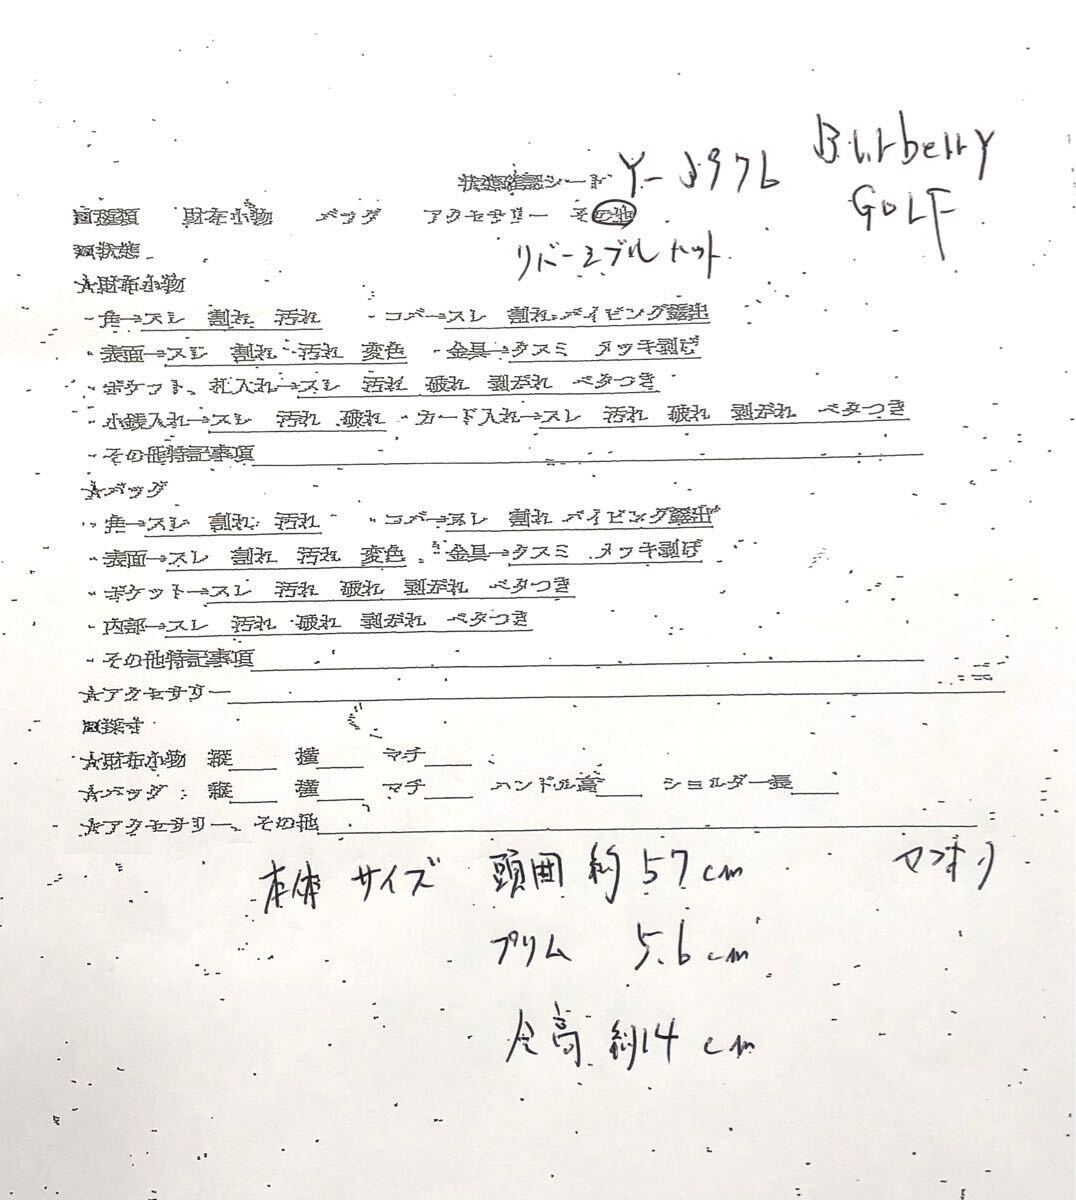 Burberry
状態確認シート Y-J976
GOLF
■種類 財布小物 バッグ アクセサリー その他
■状態 リバーシブルハット
★財布小物
・角→スレ 割れ 汚れ ・コバ→スレ 割れ パイピング露出
・表面→スレ 割れ 汚れ 変色 ・金具→クスミ メッキ剥げ
・ポケット、札入れ→スレ 汚れ 破れ 剥がれ ベタつき
・小銭入れ→スレ 汚れ 破れ ・カード入れ→スレ 汚れ 破れ 剥がれ ベタつき
・その他特記事項
★バッグ
・角→スレ 割れ 汚れ ・コバ→スレ 割れ パイピング露出
・表面→スレ 割れ 汚れ 変色 ・金具→クスミ メッキ剥げ
・ポケット→スレ 汚れ 破れ 剥がれ ベタつき
・内部→スレ 汚れ 破れ 剥がれ ベタつき
・その他特記事項
★アクセサリー
■採寸
★財布小物 縦 横 マチ
★バッグ: 縦 横 マチ ハンドル高 ショルダー長
★アクセサリー、その他
本体 サイズ 頭囲 約57cm
ブリム 5.6cm
全高 約14cm